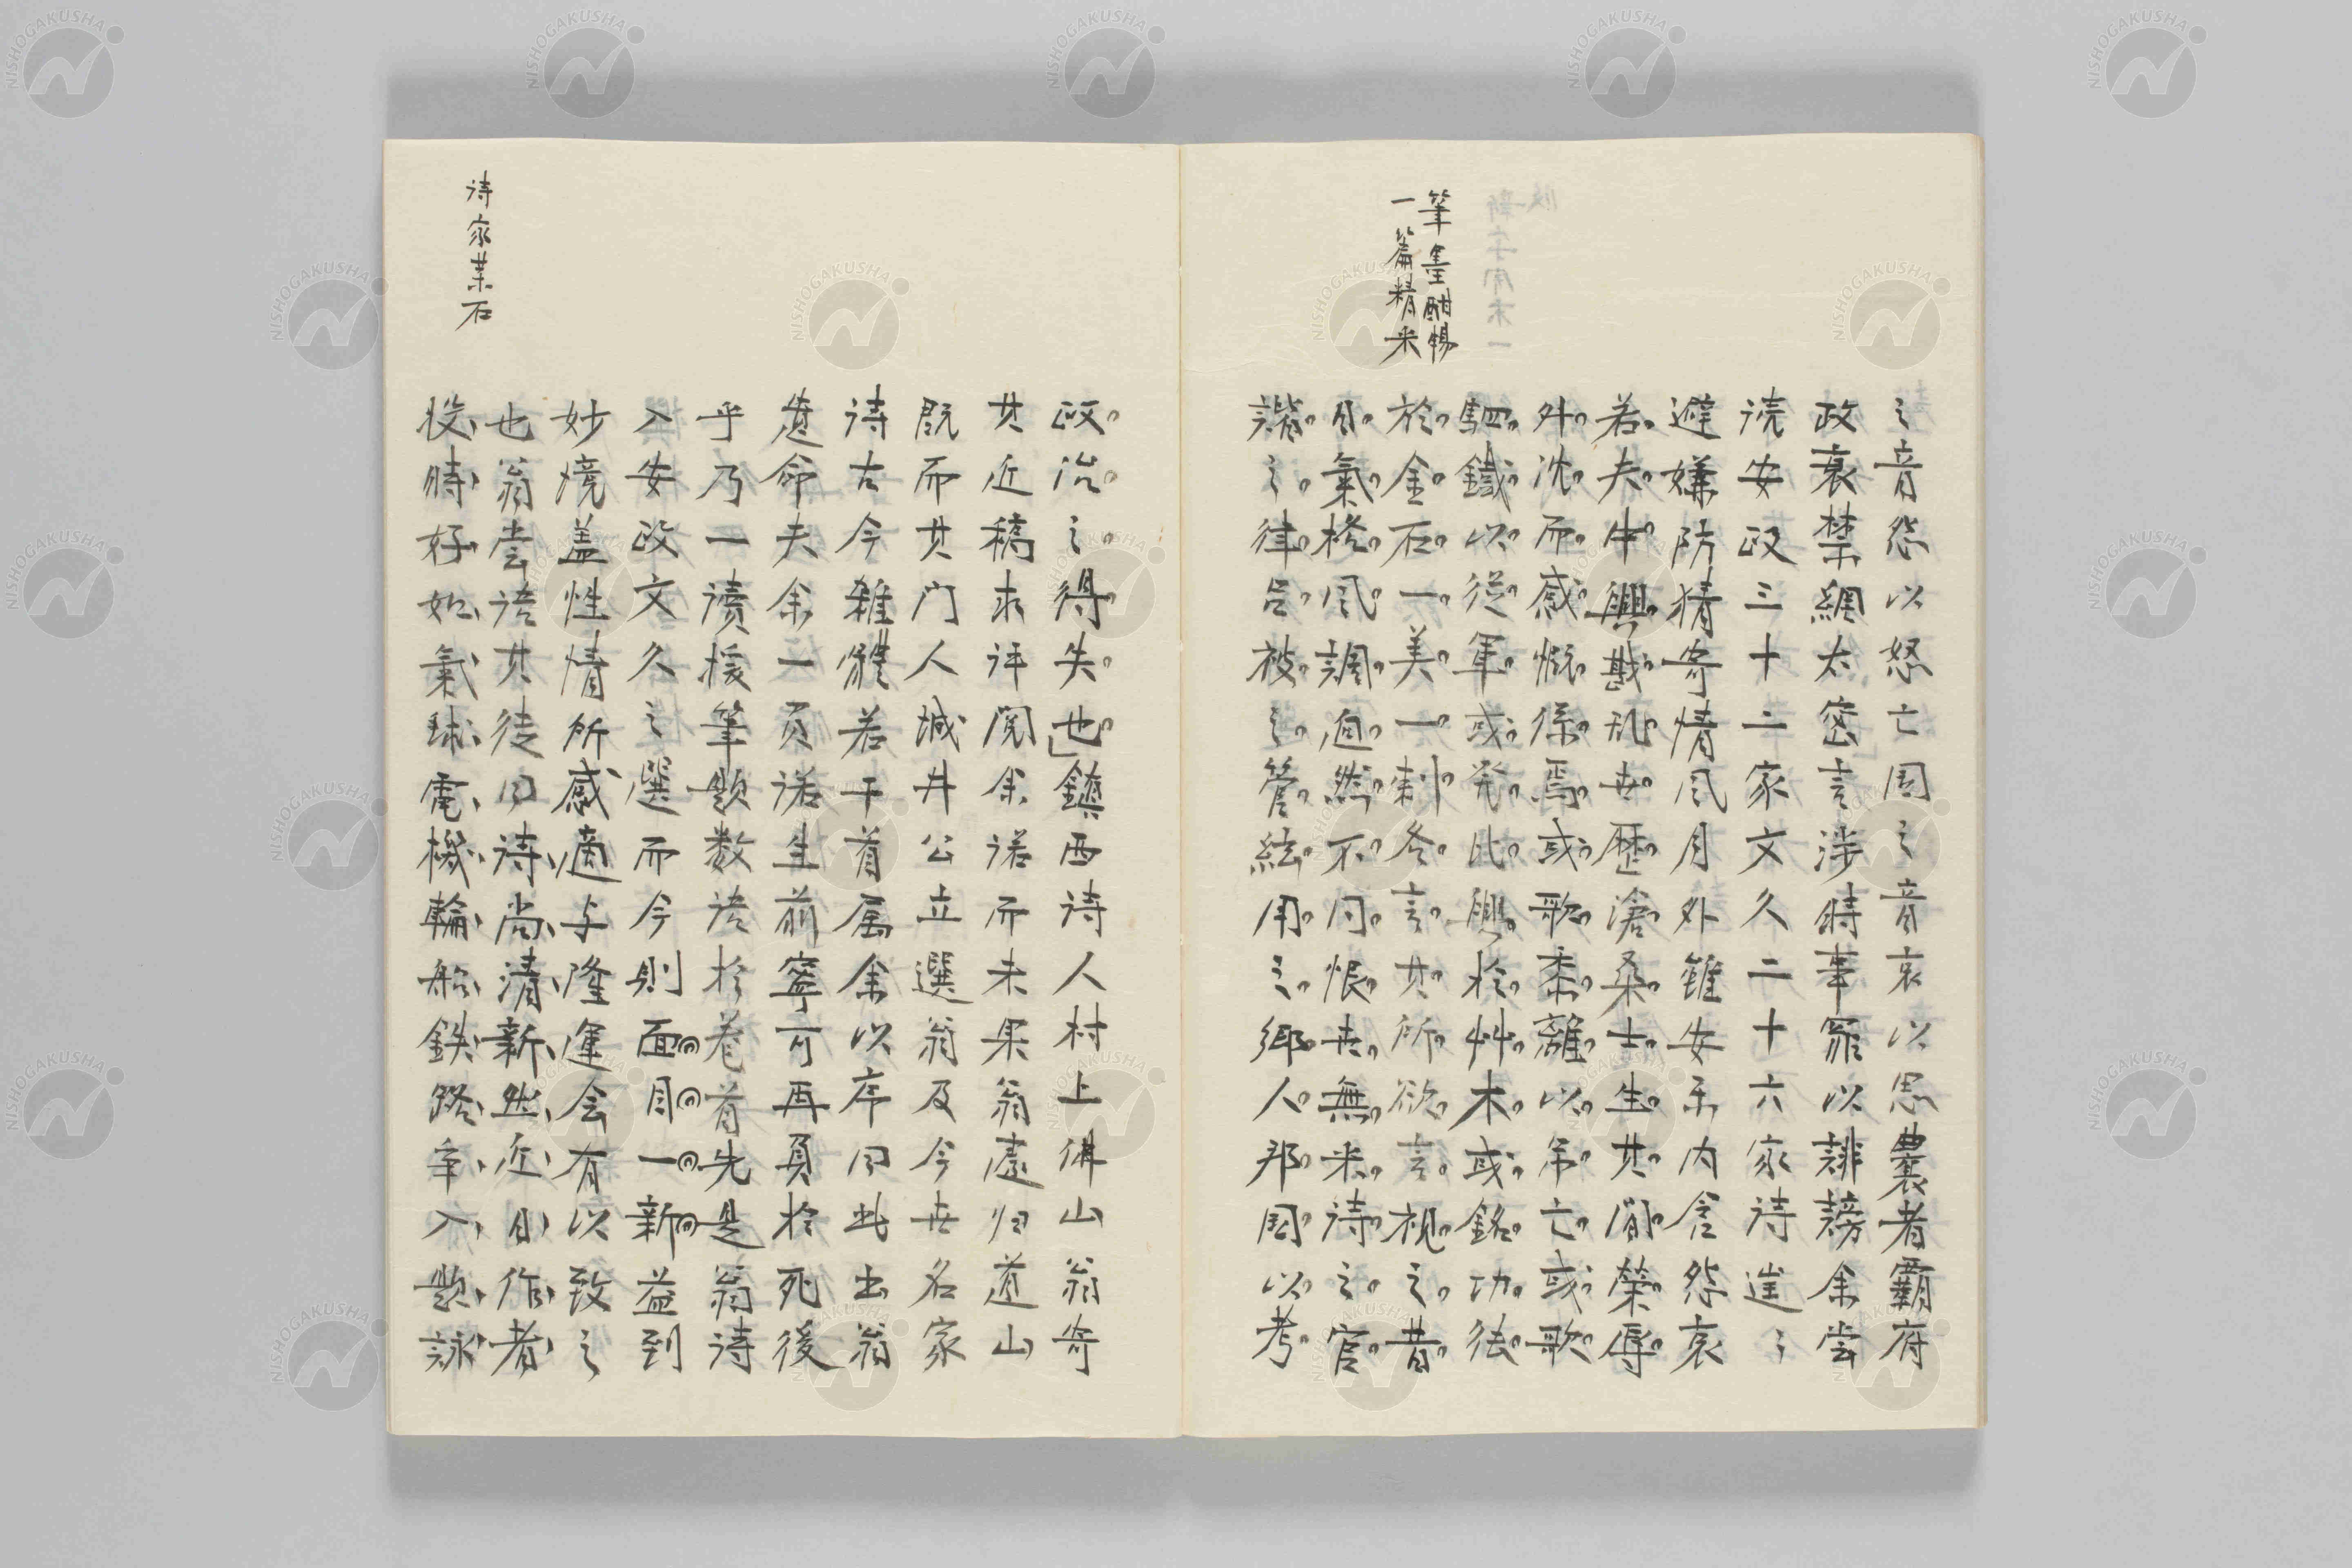 筆墨酣暢
一篇精采
之音怨以怒亡国之音哀以思農者霸府
政衰禁網太密言渉時事罪以誹謗余嘗
読安政三十二家文久二十六家詩逞々
避嫌防猜寄情風月外雖安楽内含怨哀
若夫中興戡乱世歴滄桑士生其間栄辱
外沈而感慨係焉或歌黍離以吊亡或歌
駟鐵以従軍或発比興於艸木或銘功徳
於金石一美一刺各言其所欲言視之昔
日氣格風調迥然不同恨世無采詩之官
諧之律呂被之管絃用之郷人邦国以考
政治之得失也鎮西詩人村上佛山翁寄
其近稿求評閲余諾而未果翁遽帰道山
既而其門人城井公立選翁及今世名家
詩古今雑體若干首属余以序曰此出翁
遺命夫余一負諾生前寧可再負於死後
乎乃一読援筆題数語於巻首先是翁詩
入安政文久之選而今則面目一新益到
妙境蓋性情所感適与隆運会有以致之
也翁嘗語其徒曰詩尚清新然近日作者
投時好如氣球電機輪船鉄路牽入題詠
詩家薬石